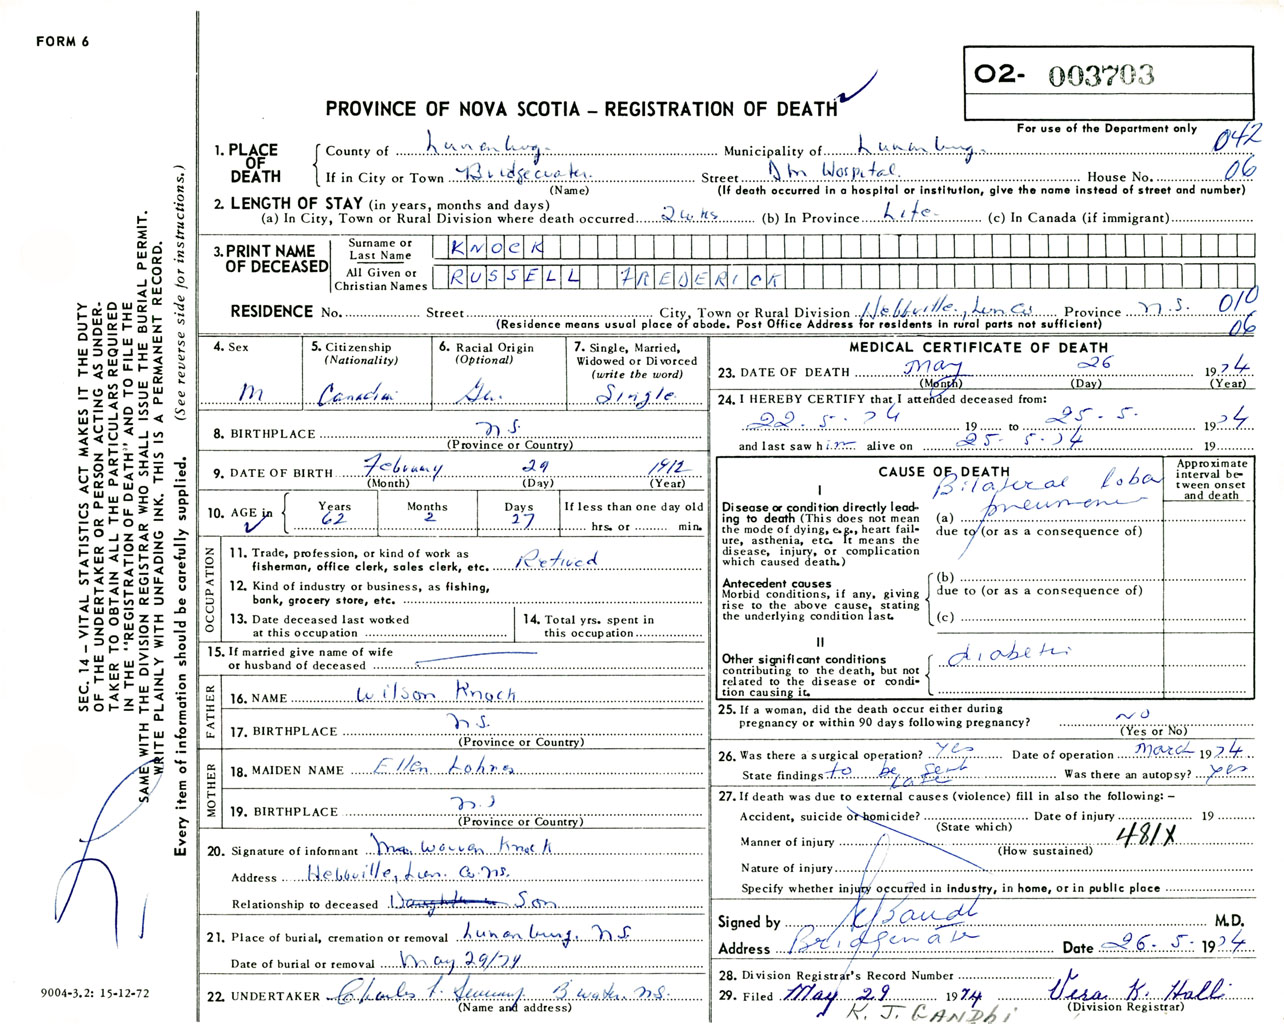 FORM 6
O2- 003703
PROVINCE OF NOVA SCOTIA – REGISTRATION OF DEATH
For use of the Department only
042
06
1. PLACE OF DEATH
County of Lunenburg. Municipality of Lunenburg.
If in City or Town Bridgewater. Street Dm Hospital. House No.
(Name) (If death occurred in a hospital or institution, give the name instead of street and number)
2. LENGTH OF STAY (in years, months and days)
(a) In City, Town or Rural Division where death occurred 2 wks (b) In Province Life. (c) In Canada (if immigrant)
3. PRINT NAME OF DECEASED
Surname or Last Name KNOCK
All Given or Christian Names RUSSELL FREDERICK
RESIDENCE No. Street City, Town or Rural Division Hebbville, Lun Co Province N.S. 010
(Residence means usual place of abode. Post Office Address for residents in rural parts not sufficient) 06
4. Sex M
5. Citizenship (Nationality) Canadian
6. Racial Origin (Optional) Ger.
7. Single, Married, Widowed or Divorced (write the word) Single
8. BIRTHPLACE N.S.
(Province or Country)
9. DATE OF BIRTH February 29 1912
(Month) (Day) (Year)
10. AGE in Years 62 Months 2 Days 27 If less than one day old hrs. or min.
OCCUPATION
11. Trade, profession, or kind of work as
fisherman, office clerk, sales clerk, etc. Retired
12. Kind of industry or business, as fishing,
bank, grocery store, etc.
13. Date deceased last worked
at this occupation
14. Total yrs. spent in
this occupation
15. If married give name of wife
or husband of deceased
FATHER
16. NAME Wilson Knock
17. BIRTHPLACE N.S.
(Province or Country)
MOTHER
18. MAIDEN NAME Ellen Lohnes
19. BIRTHPLACE N.S
(Province or Country)
20. Signature of informant Warren Knock
Address Hebbville, Lun. Co. N.S.
Relationship to deceased Daughter Son
21. Place of burial, cremation or removal Lunenburg, N.S.
Date of burial or removal May 29/74
22. UNDERTAKER Charles B'water. N.S.
(Name and address)
MEDICAL CERTIFICATE OF DEATH
23. DATE OF DEATH May 26 1974
(Month) (Day) (Year)
24. I HEREBY CERTIFY that I attended deceased from:
22.5.74 19 to 25.5. 1974
and last saw him alive on 25.5.74 19
CAUSE OF DEATH
Approximate interval between onset and death
I
Disease or condition directly leading to death (This does not mean the mode of dying, e.g., heart failure, asthenia, etc. It means the disease, injury, or complication which caused death.)
Bilateral lobar
(a) pneumonia
due to (or as a consequence of)
Antecedent causes
Morbid conditions, if any, giving rise to the above cause, stating the underlying condition last.
(b)
due to (or as a consequence of)
(c)
II
Other significant conditions
contributing to the death, but not related to the disease or condition causing it.
diabetes
25. If a woman, did the death occur either during
pregnancy or within 90 days following pregnancy? NO
(Yes or No)
26. Was there a surgical operation? Yes Date of operation March 1974
State findings to be sent later Was there an autopsy? Yes
27. If death was due to external causes (violence) fill in also the following: –
Accident, suicide or homicide? Date of injury 19
(State which)
Manner of injury 481X
(How sustained)
Nature of injury
Specify whether injury occurred in industry, in home, or in public place
Signed by K J Gandhi M.D.
Address Bridgewater Date 26.5. 1974
28. Division Registrar's Record Number
29. Filed May 29 1974 Vera K. Hall
(Division Registrar)
K. J. GANDHI
SEC. 14 – VITAL STATISTICS ACT MAKES IT THE DUTY
OF THE UNDERTAKER OR PERSON ACTING AS UNDER-
TAKER TO OBTAIN ALL THE PARTICULARS REQUIRED
IN THE "REGISTRATION OF DEATH" AND TO FILE THE
SAME WITH THE DIVISION REGISTRAR WHO SHALL ISSUE THE BURIAL PERMIT.
WRITE PLAINLY WITH UNFADING INK. THIS IS A PERMANENT RECORD.
Every item of information should be carefully supplied. (See reverse side for instructions.)
9004-3.2: 15-12-72